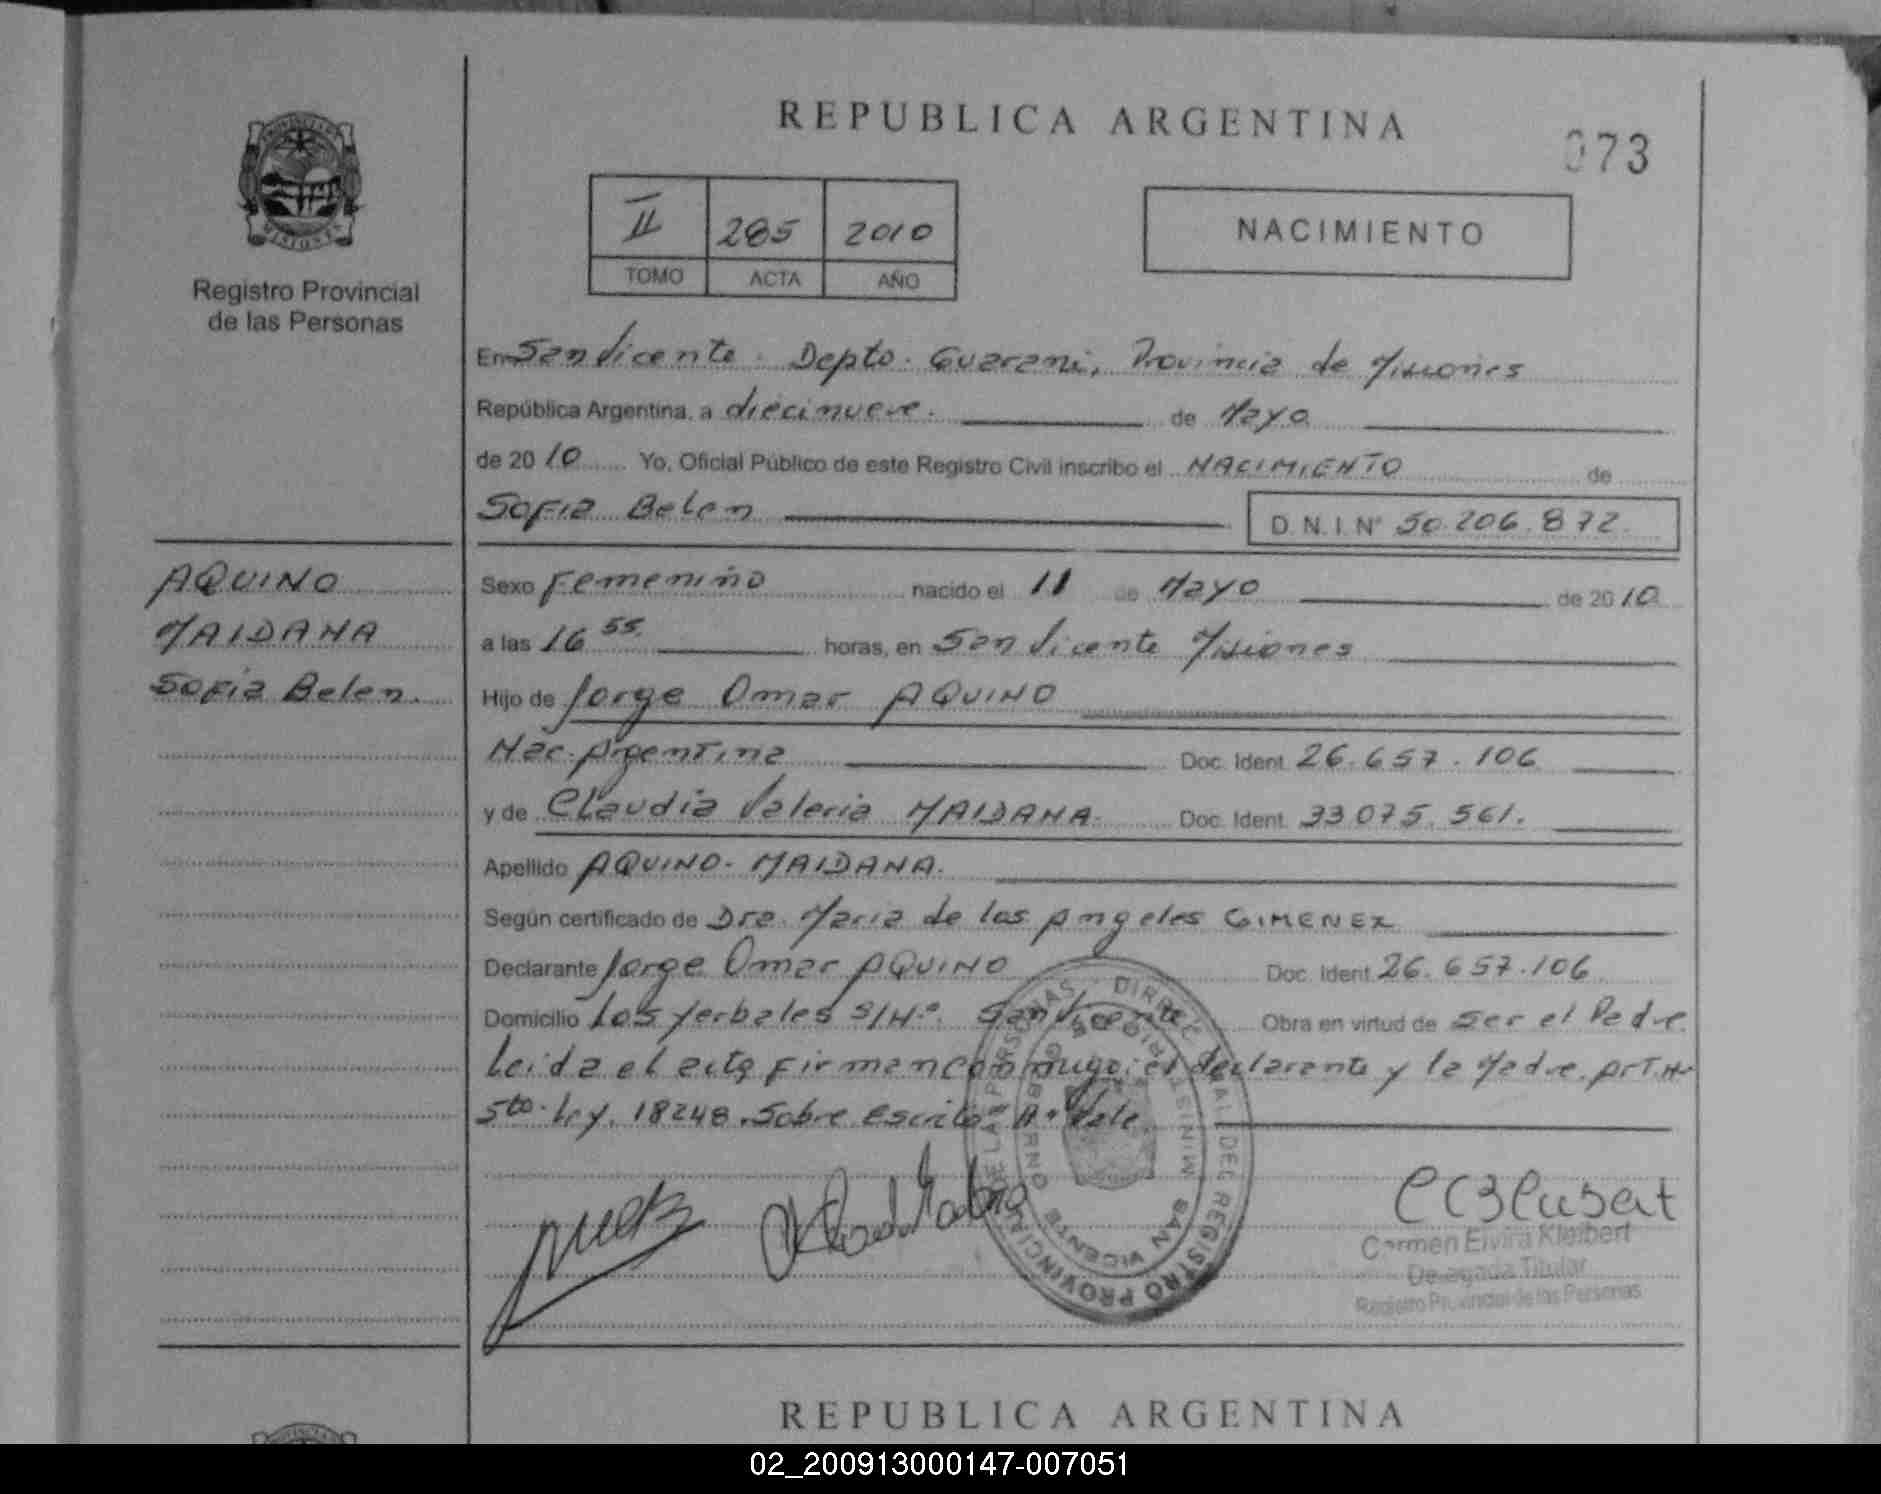 REPUBLICA ARGENTINA
073
PROVINCIA DE
MISIONES
Registro Provincial
de las Personas
II 285 2010
TOMO ACTA AÑO
NACIMIENTO
En San Vicente. Depto. Guarani, Provincia de Misiones
República Argentina, a diecinueve. de Mayo
de 2010 Yo, Oficial Público de este Registro Civil inscribo el NACIMIENTO de
Sofia Belen D.N.I.N° 50.206.872.
AQUINO
MAIDANA
Sofia Belen.
Sexo Femenino nacido el 11 de Mayo de 2010
a las 16 55 horas, en San Vicente Misiones
Hijo de Jorge Omar AQUINO
Nac. Argentina Doc. Ident. 26.657.106
y de Claudia Valeria MAIDANA. Doc. Ident. 33.075.561.
Apellido AQUINO. MAIDANA.
Según certificado de Dra. Maria de los Angeles GIMENEZ
Declarante Jorge Omar AQUINO Doc. Ident. 26.657.106
Domicilio Los yerbales S/N°. San Vicente Obra en virtud de ser el Padre
Leida el acta firman conmigo: el declarante y la Madre. Art. N°
5to. Ley. 18248. Sobre Escrito: A. Vale.
DEL REGISTRO PROVINCIAL DE LAS PERSONAS
SAN VICENTE
Carmen Elvira Kleibert
Delegada Titular
Registro Provincial de las Personas
REPUBLICA ARGENTINA
02_200913000147-007051